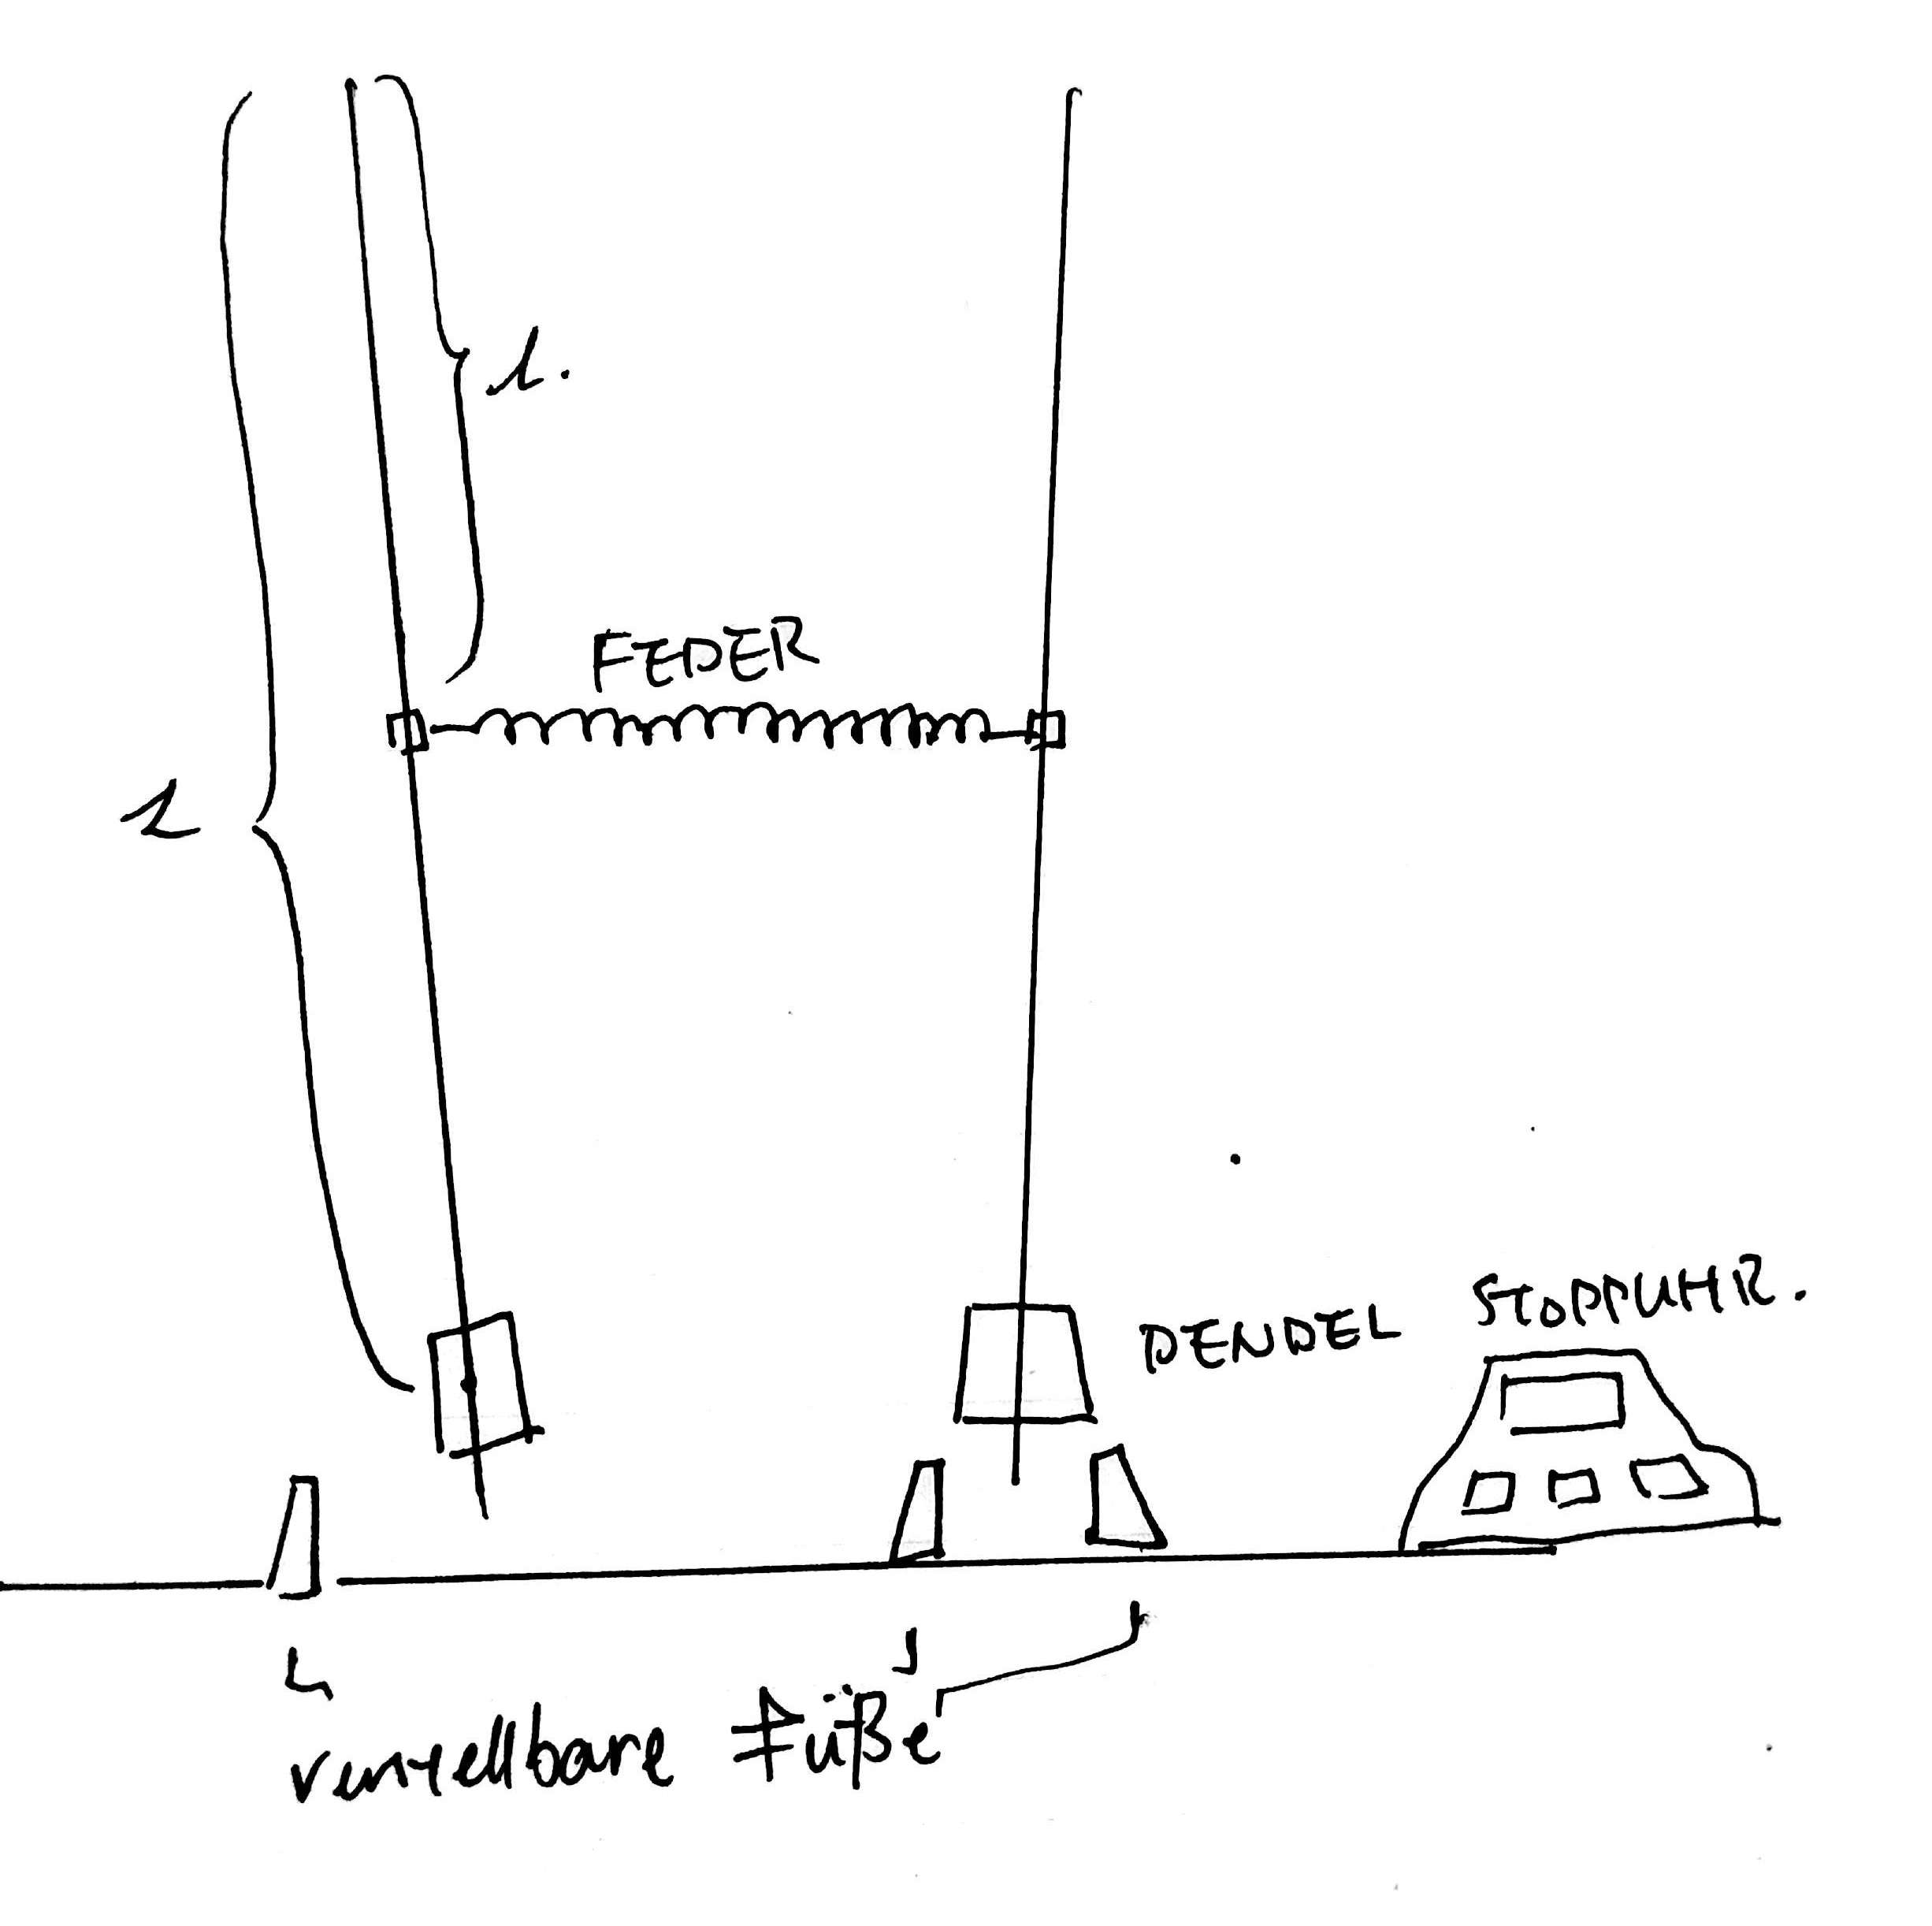 l.
FEDER
L
PENDEL
STOPPUHR.
verstellbare Füße